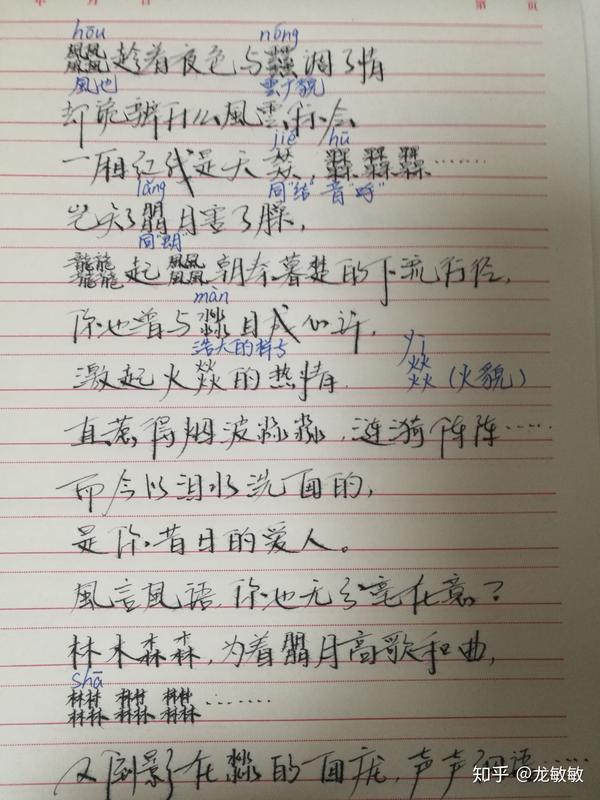 年 月 日 第 页
hōu nóng
𩙡趁着夜色与𩇔调了情
風也 雲广貌
却诡辩什么風雲际会
jié hū
一厢红线是天 ……
同"结" 音"呼"
lǎng
岂知朤月害了臊,
同"朗"
𪚥起𩙡朝秦暮楚的下流行径,
màn
你也曾与㵘目成心许,
浩大的样子
yì
激起火燚的热情. 燚(火貌)
直惹得烟波淼淼,涟漪阵阵……
而今以泪水洗面的,
是你昔日的爱人。
風言風語,你也无分毫在意?
林木森森,为着朤月高歌和曲,
shā
𣡽 𣡽 𣡽……
又倒影在㵘的面庞,声声 语……
知乎 @龙敏敏